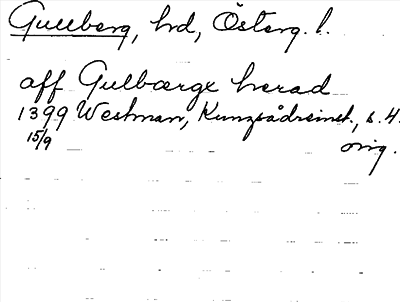 Gullberg, hd, Österg. l.
aff Gulbærge herad
1399 Westman, Kungsådreinst., s. 4.
15/9 orig.